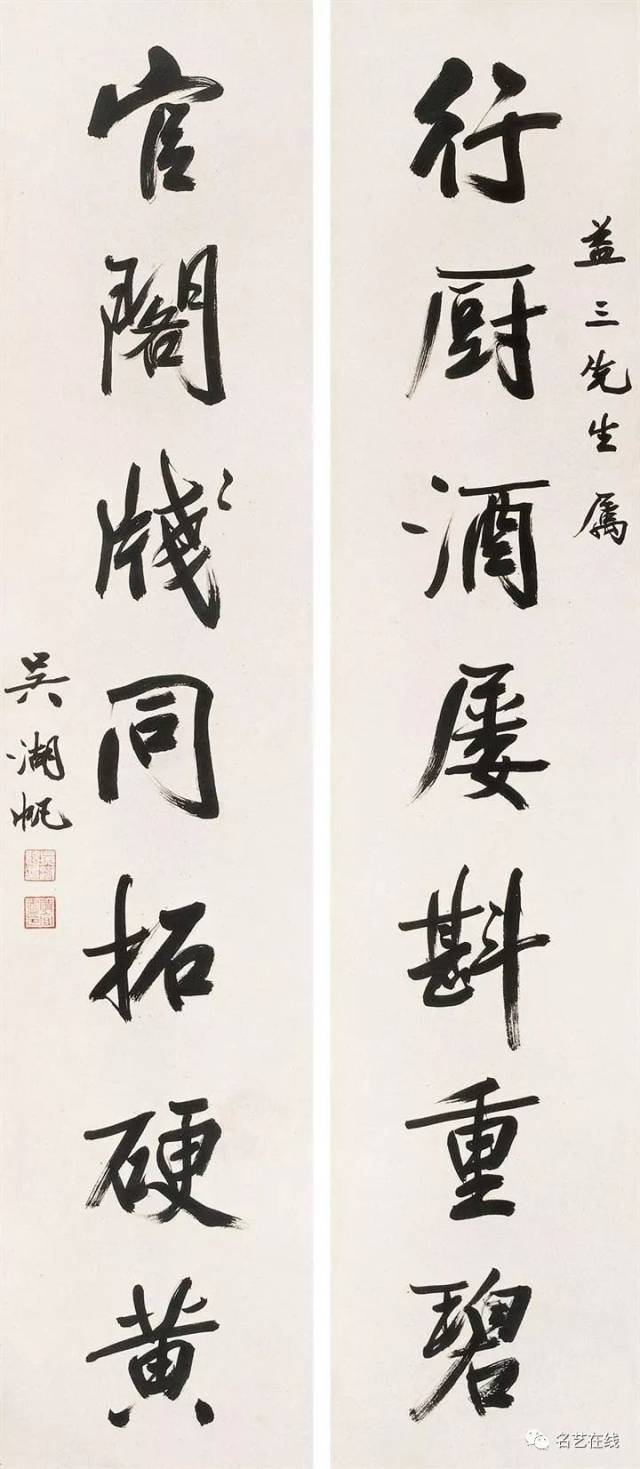 益三先生属
行厨酒屡斟重碧
官阁牋同拓硬黄
吴湖帆
名艺在线